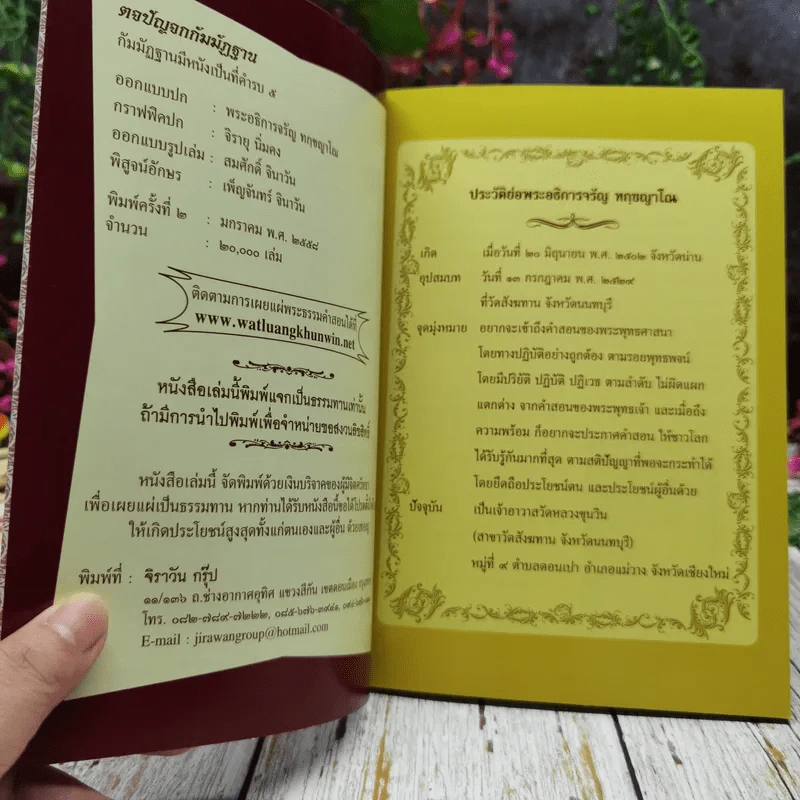 ตจปัญจกกัมมัฏฐาน
กัมมัฏฐานมีหนังเป็นที่คำรบ ๕
ออกแบบปก : พระอธิการจรัญ ทกฺขญาโณ
กราฟฟิคปก : จิรายุ นิ่มคง
ออกแบบรูปเล่ม : สมศักดิ์ จินาวัน
พิสูจน์อักษร : เพ็ญจันทร์ จินาวัน
พิมพ์ครั้งที่ ๒ : มกราคม พ.ศ. ๒๕๕๘
จำนวน : ๒๐,๐๐๐ เล่ม
ติดตามการเผยแผ่พระธรรมคำสอนได้ที่
www.watluangkhunwin.net
หนังสือเล่มนี้พิมพ์แจกเป็นธรรมทานเท่านั้น
ถ้ามีการนำไปพิมพ์เพื่อจำหน่ายขอสงวนลิขสิทธิ์
หนังสือเล่มนี้ จัดพิมพ์ด้วยเงินบริจาคของผู้มีจิตศรัทธา
เพื่อเผยแผ่เป็นธรรมทาน หากท่านได้รับหนังสือนี้ขอได้โปรด
ให้เกิดประโยชน์สูงสุดทั้งแก่ตนเองและผู้อื่น ด้วยเทอญ
พิมพ์ที่ : จิราวัน กรุ๊ป
๑๑/๑๓๖ ถ.ช่างอากาศอุทิศ แขวงสีกัน เขตดอนเมือง
โทร. ๐๘๒-๗๘๙-๗๒๒๒, ๐๘๕-๖๗๖-๓๙๔๑,
E-mail : jirawangroup@hotmail.com
ประวัติย่อพระอธิการจรัญ ทกฺขญาโณ
เกิด เมื่อวันที่ ๒๐ มิถุนายน พ.ศ. ๒๕๐๒ จังหวัดน่าน
อุปสมบท วันที่ ๑๓ กรกฎาคม พ.ศ. ๒๕๒๙
ที่วัดสังฆทาน จังหวัดนนทบุรี
จุดมุ่งหมาย อยากจะเข้าถึงคำสอนของพระพุทธศาสนา
โดยทางปฏิบัติอย่างถูกต้อง ตามรอยพุทธพจน์
โดยมีปริยัติ ปฏิบัติ ปฏิเวธ ตามลำดับ ไม่ผิดแผก
แตกต่าง จากคำสอนของพระพุทธเจ้า และเมื่อถึง
ความพร้อม ก็อยากจะประกาศคำสอน ให้ชาวโลก
ได้รับรู้กันมากที่สุด ตามสติปัญญาที่พอจะกระทำได้
โดยยึดถือประโยชน์ตน และประโยชน์ผู้อื่นด้วย
ปัจจุบัน เป็นเจ้าอาวาสวัดหลวงขุนวิน
(สาขาวัดสังฆทาน จังหวัดนนทบุรี)
หมู่ที่ ๙ ตำบลดอนเปา อำเภอแม่วาง จังหวัดเชียงใหม่